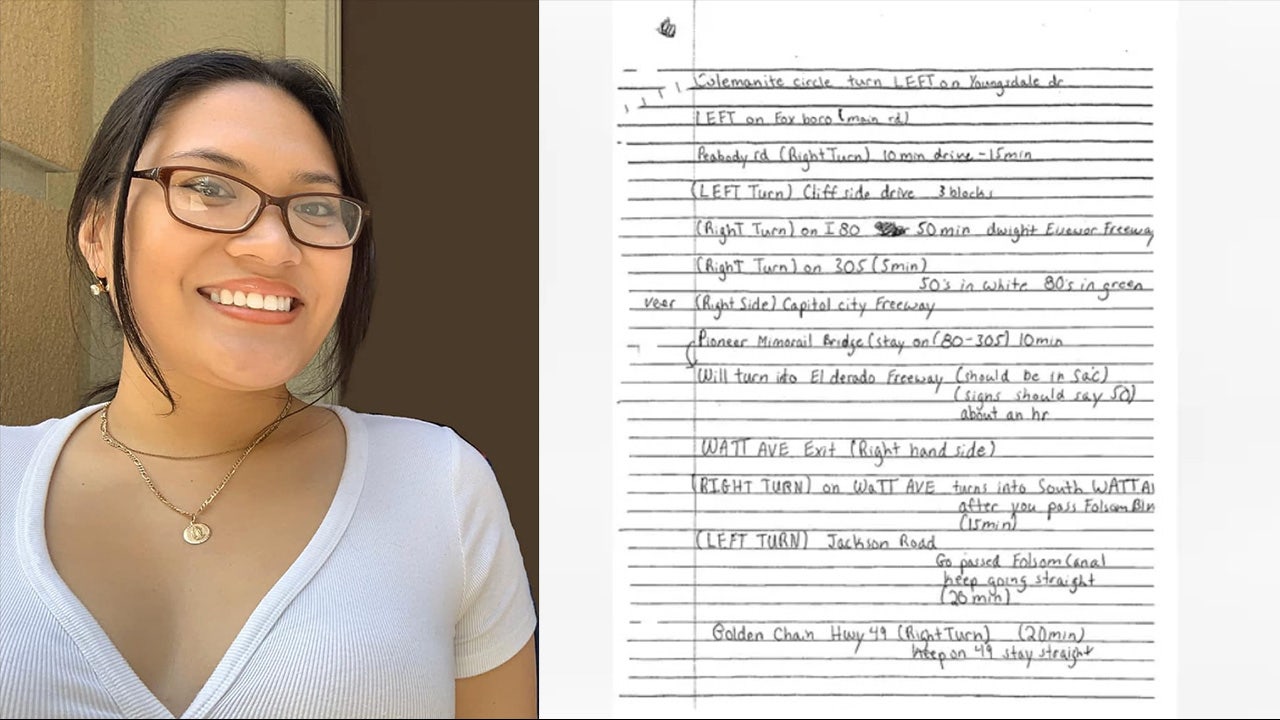 Colemanite circle turn LEFT on Youngsdale dr
LEFT on Foxboro (main rd)
Peabody rd (Right Turn) 10 min drive - 15min
(LEFT Turn) Cliff side drive 3 blocks
(Right Turn) on I 80 50 min dwight Freeway
(Right Turn) on 305 (5min)
50's in white 80's in green
veer (Right Side) Capitol city Freeway
Pioneer Mimorail Bridge (stay on (80-305) 10 min
Will turn into El derado Freeway (should be in Sac)
(signs should say 50)
about an hr
WATT AVE Exit (Right hand side)
(RIGHT TURN) on WATT AVE turns into South WATT A
after you pass Folsom Blv
(15min)
(LEFT TURN) Jackson Road
Go passed Folsom Canal
keep going straight
(20 min)
Golden Chain Hwy 49 (Right Turn) (20min)
keep on 49 stay straight